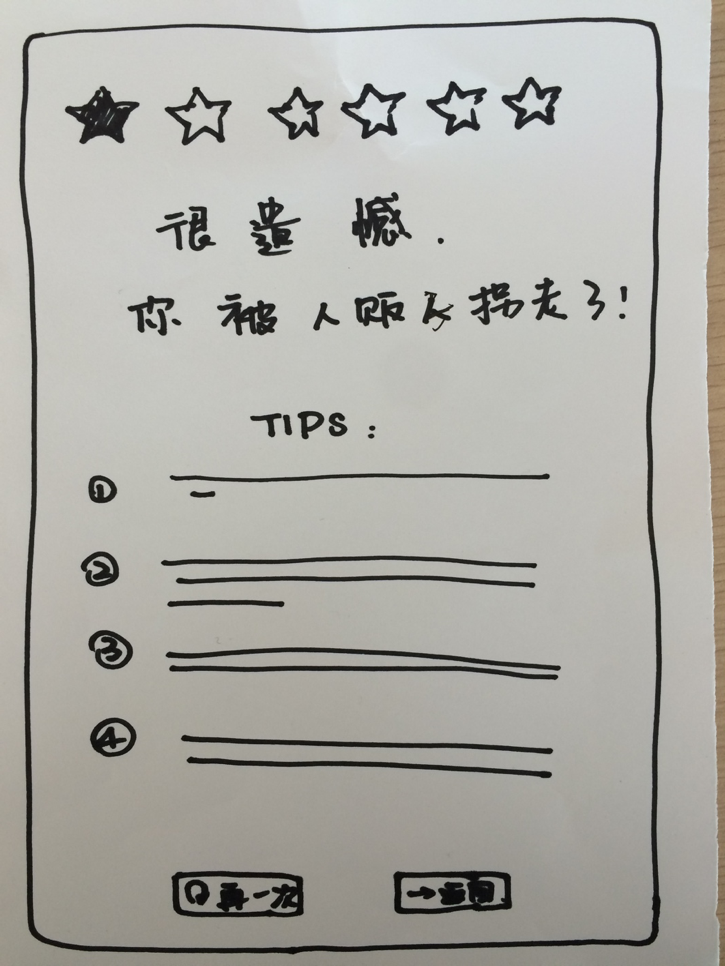 很遗憾.
你被人贩子拐走了!
TIPS:
①
②
③
④
再一次